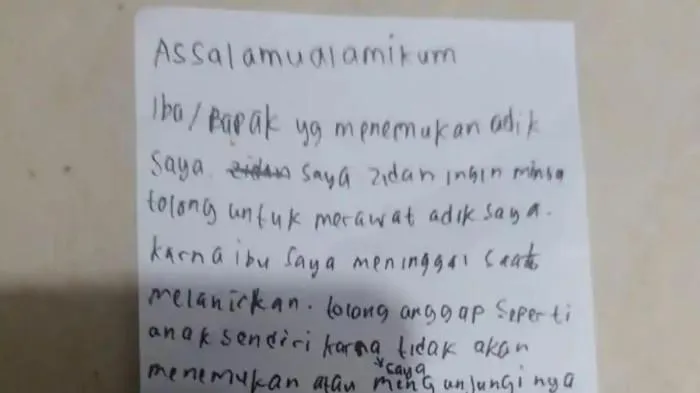 Assalamualamikum
Iba/Bapak yg menemukan adik
saya. zidan saya zidan ingin minta
tolong untuk merawat adik saya.
karna ibu saya meninggal saat
melanirkan. tolong anggap seperti
anak sendiri karna tidak akan
saya
menemukan atau mengunjungi nya